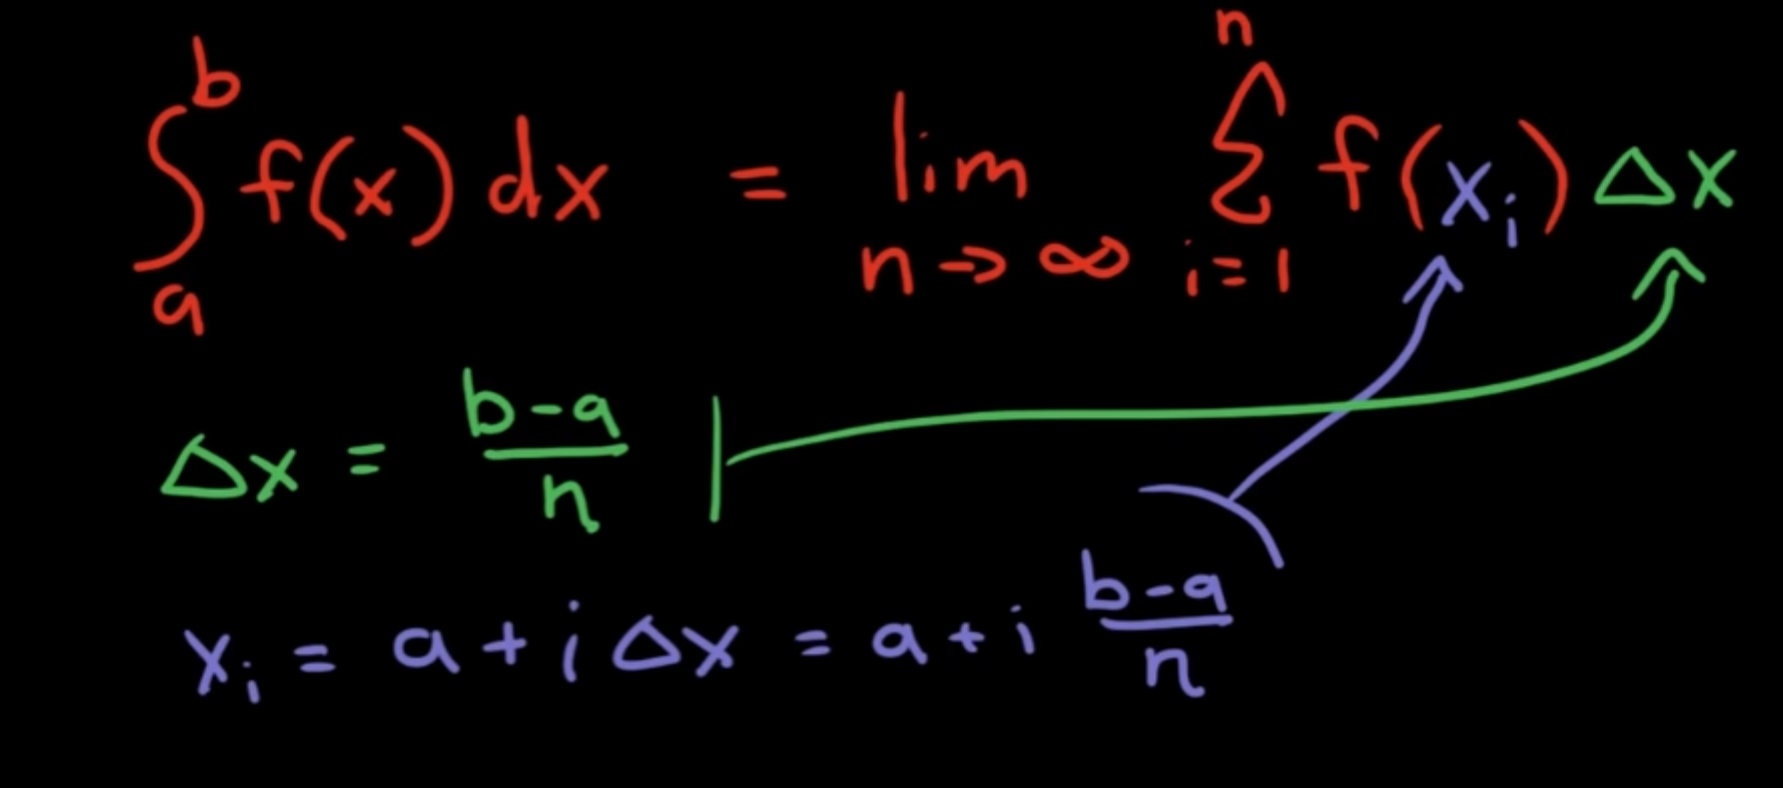 ∫_a^b f(x) dx = lim_{n→∞} Σ_{i=1}^n f(x_i) Δx
Δx = (b-a)/n
x_i = a + i Δx = a + i (b-a)/n